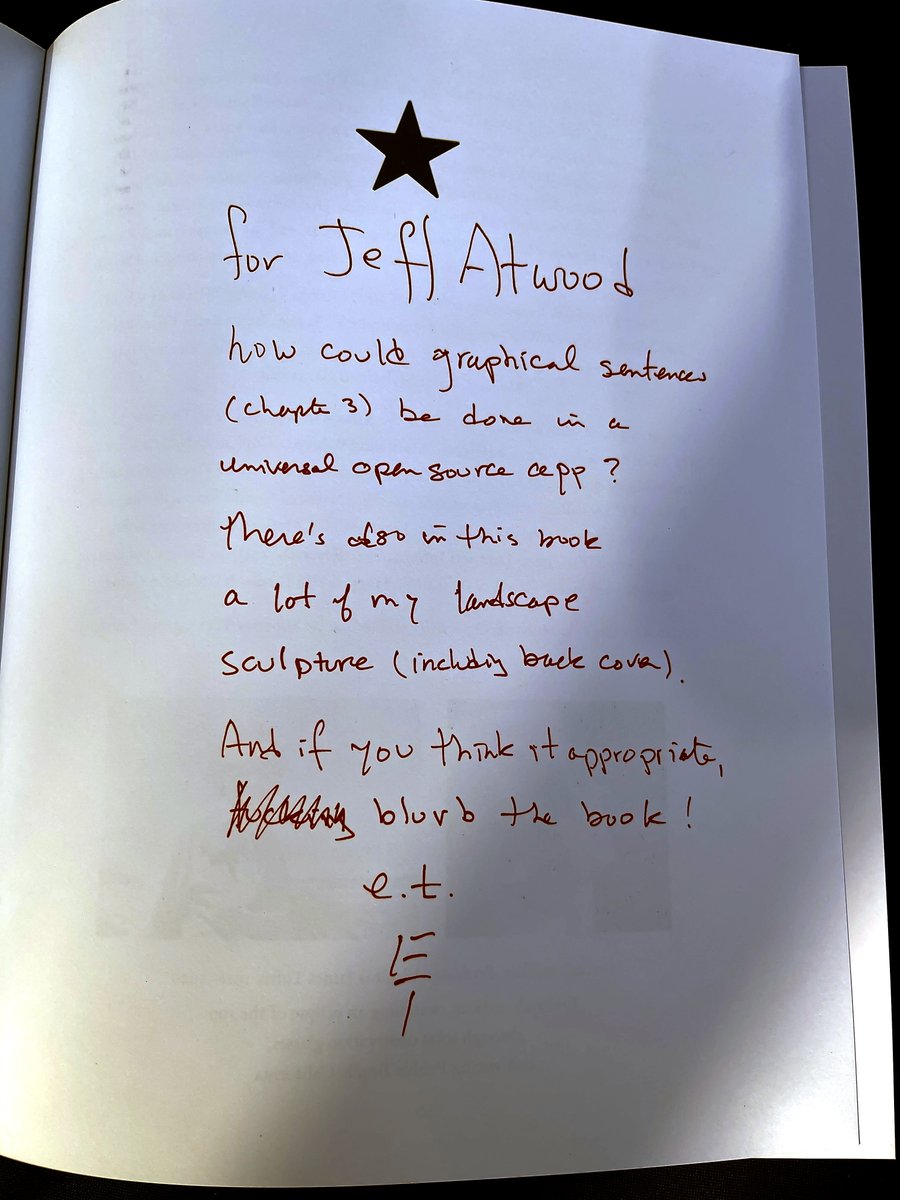 for Jeff Atwood
how could graphical sentences
(chapter 3) be done in a
universal open source app?
There's also in this book
a lot of my landscape
sculpture (including back cover).
And if you think it appropriate,
blurb the book!
e.t.
E